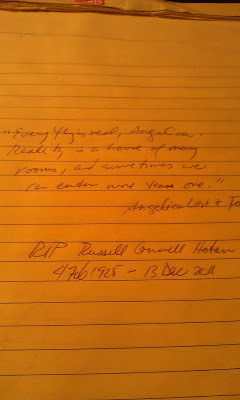 "Everything is real, Angelica.
Reality is a house of many
rooms, and sometimes we
can enter more than one."
Angelica Lost + Fo
RIP Russell Conwell Hoban
4 Feb 1925 – 13 Dec 2011